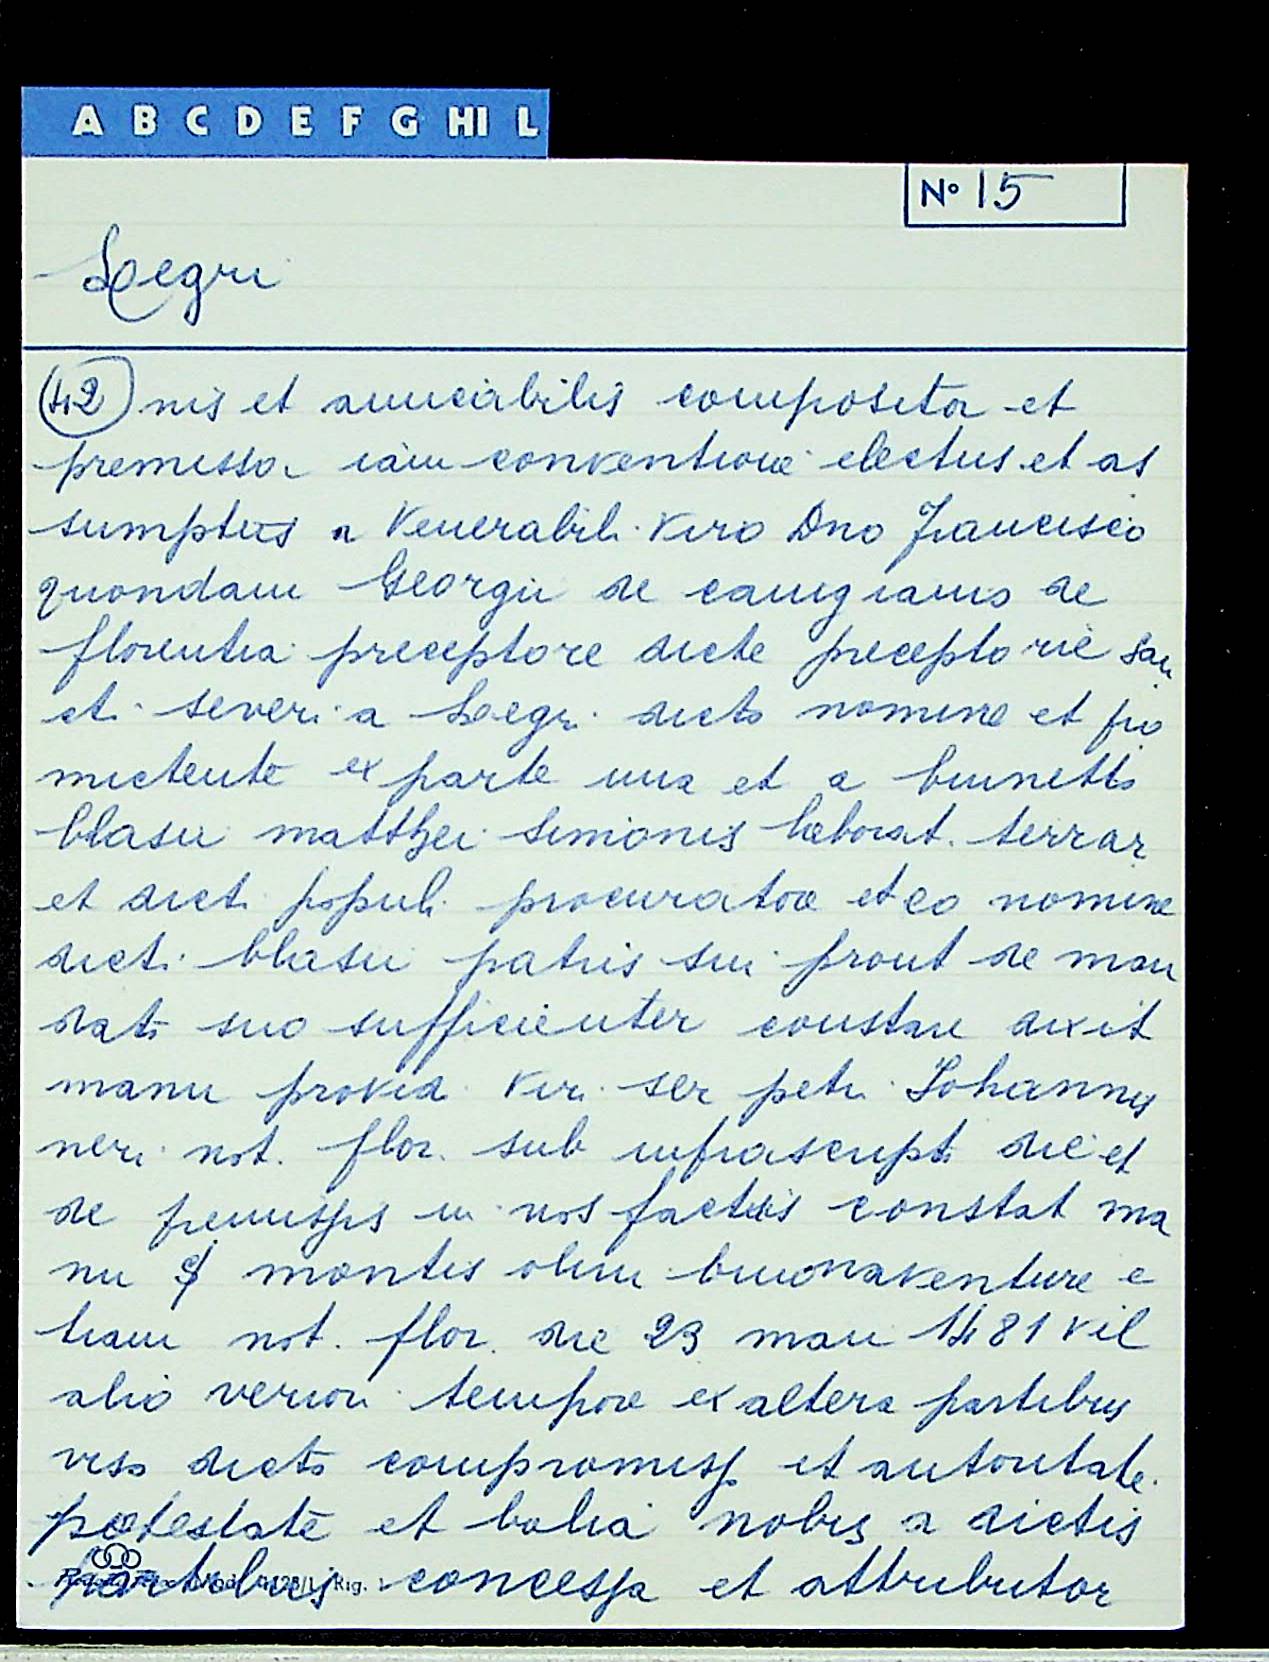 A B C D E F G HI L
N° 15
Legri
(42) nis et amicabilis compositor et
premissa iam conventione electus et as
sumptus a Venerabili Viro Dno Francisco
quondam Georgii de canigianis de
florentia preceptore dicte preceptorie San
cti Severi a Legri dicto nomine et pro
mictente ex parte una et a brunetto
blasii matthei Simonis laborat. terrar
et dicti populi procuratore et eo nomine
dicti blasii patris sui prout de man
dato suo sufficienter constare dixit
manu providi viri ser petri Johannis
neri not. flor. sub infrascripto die et
de premissis in nos factis constat ma
nu montis olim buonaventure e
tiam not. flor. die 23 maii 1481 vel
alio veriori tempore ex altera partibus
viso dicto compromisso et autoritate
potestate et balia nobis a dictis
partibus concessa et attributa
Rig.